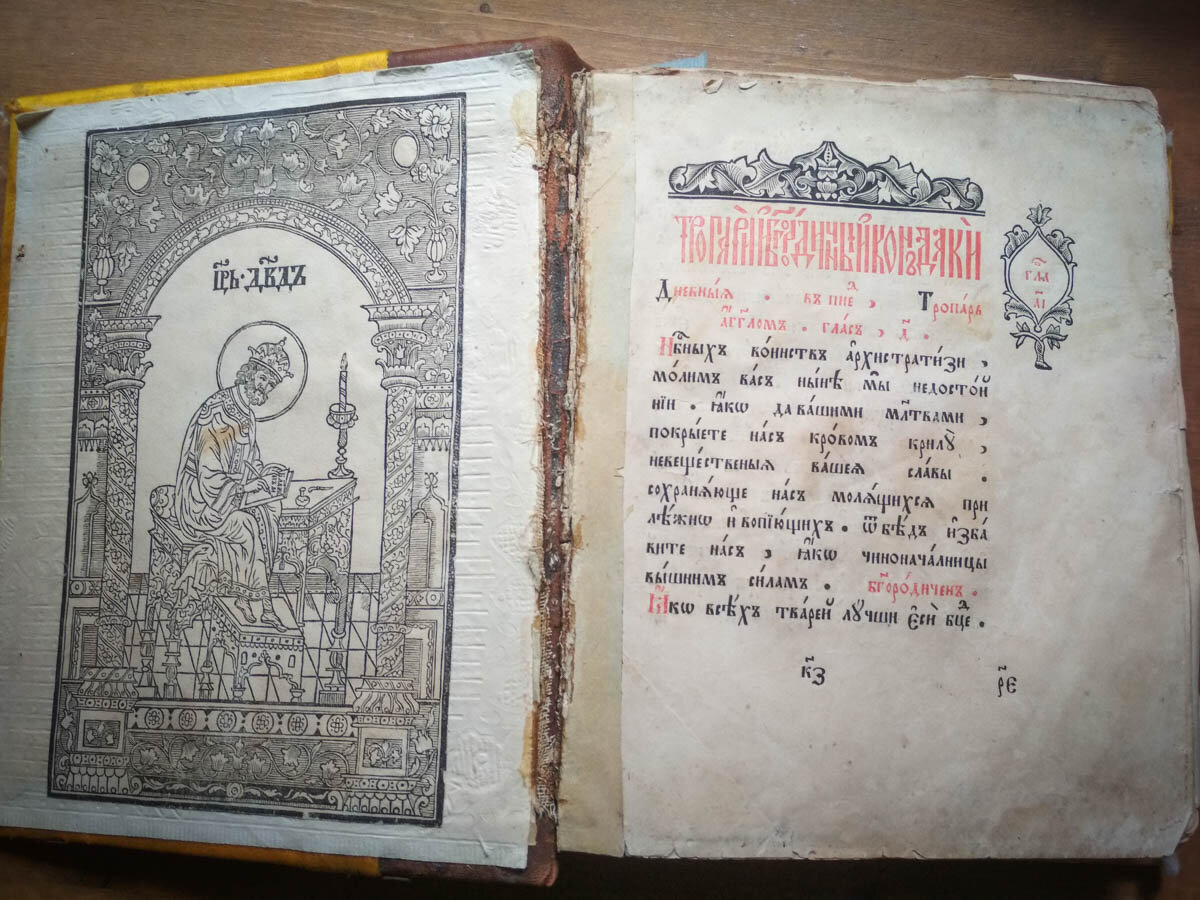 Цр҃ь · Дв҃дъ
Тропарѝ и҆ бг҃оро́дичны и҆ кондаки̑
Дневныѧ . въ пн҃еⷣ , Тропарь
а҆́гг҃ломъ . гла́съ , д҃ .
Нбⷭ҇ныхъ во́инствъ а҆рхистрати́зи ,
мо́лимъ ва́съ ны́нѣ мы̀ недосто́й
нїи . ꙗ҆́кѡ да ва́шими мл҃твами ,
покры́ете на́съ кро́вомъ крилꙋ̀ ,
невеще́ственыѧ ва́шеѧ сла́вы .
сохранѧ́юще на́съ молѧ́щихсѧ при
лѣ́жнѡ и҆ вопїю́щихъ . ѿ бѣ́дъ и҆зба
вите на́съ , ꙗ҆́кѡ чинонача́лницы
вы́шнимъ си́ламъ . бг҃оро́диченъ .
Ꙗ҆́кѡ всѣ́хъ тва́рей лꙋ́чши є҆сѝ бц҃еⷣ .
гла
а҃і
к҃з
р҃є